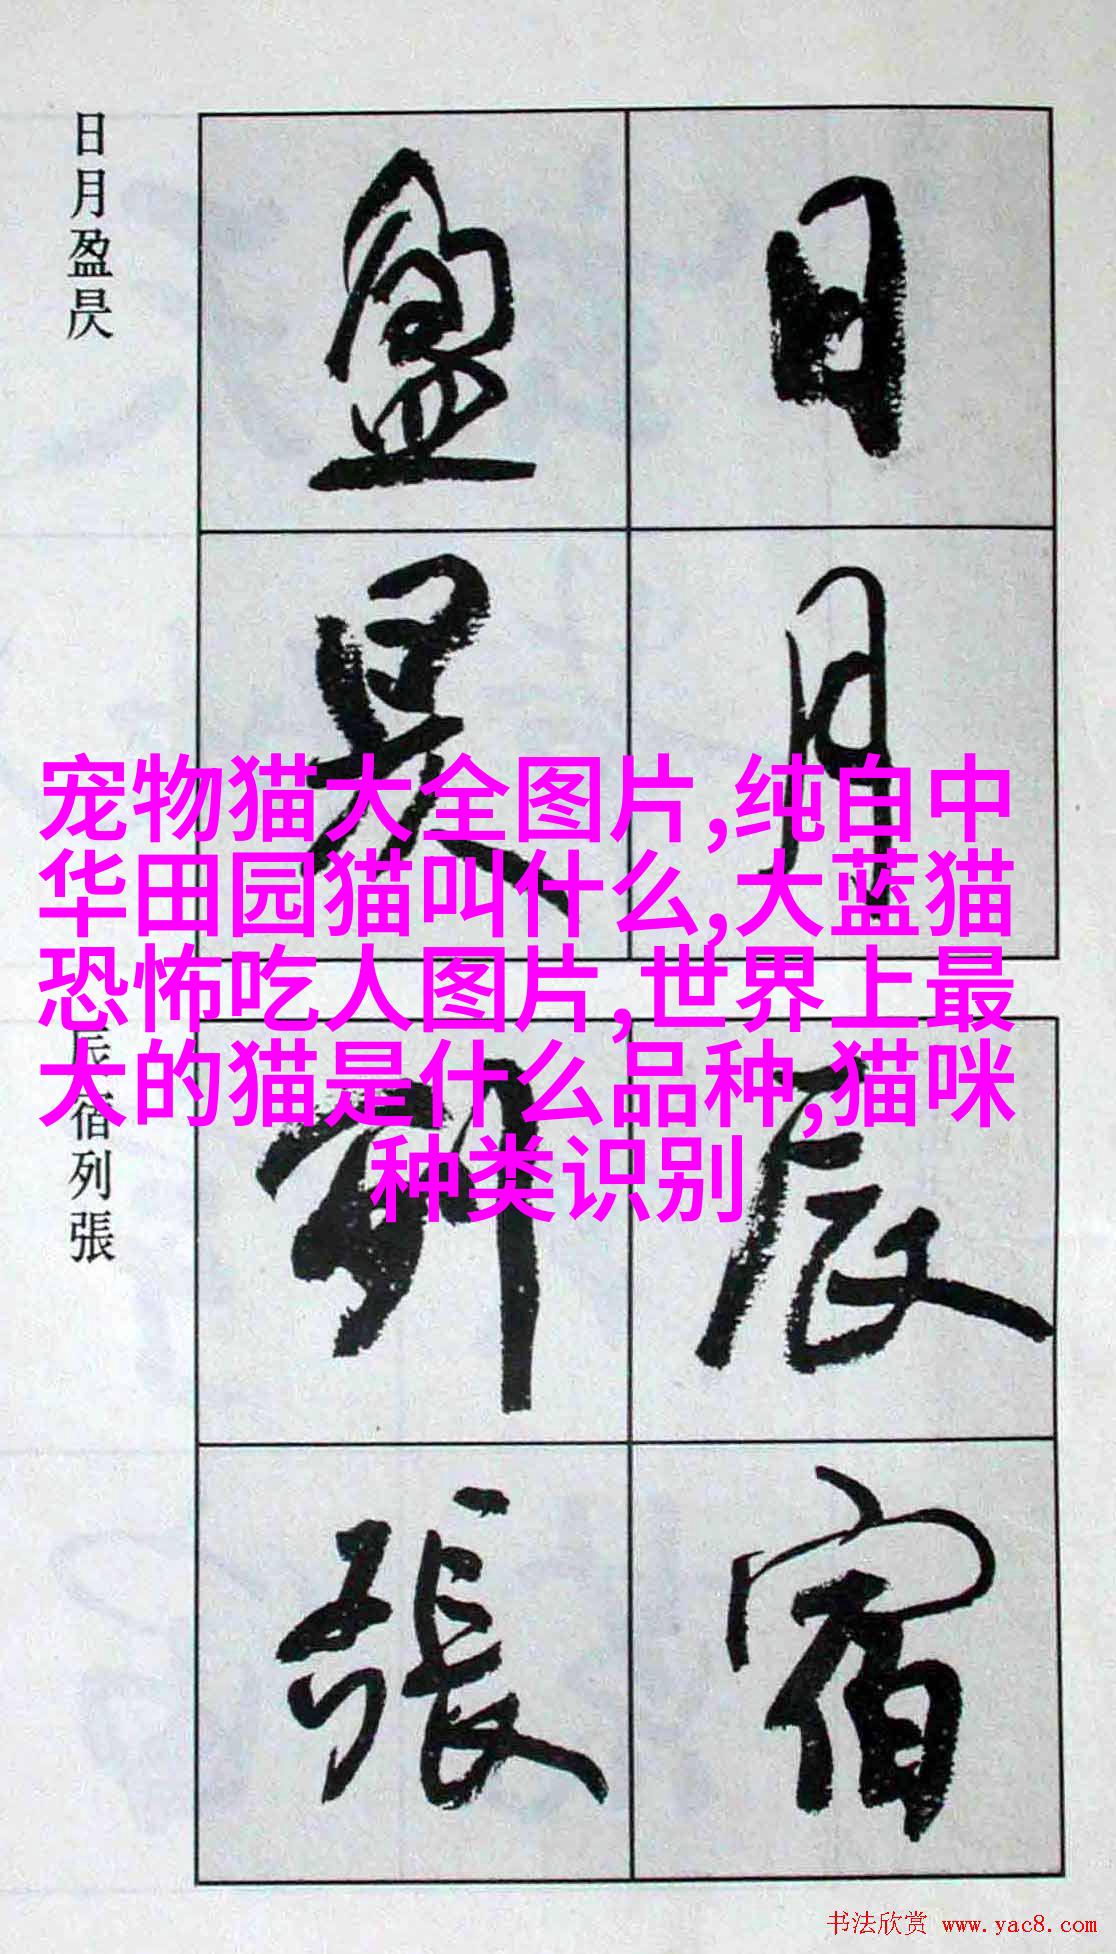 日月盈昃
日月
盈昃
宠物猫大全图片,纯白中
华田园猫叫什么,大蓝猫
恐怖吃人图片,世界上最
大的猫是什么品种,猫咪
种类识别
辰宿列張
辰宿
列張
书法欣赏 www.yac8.com